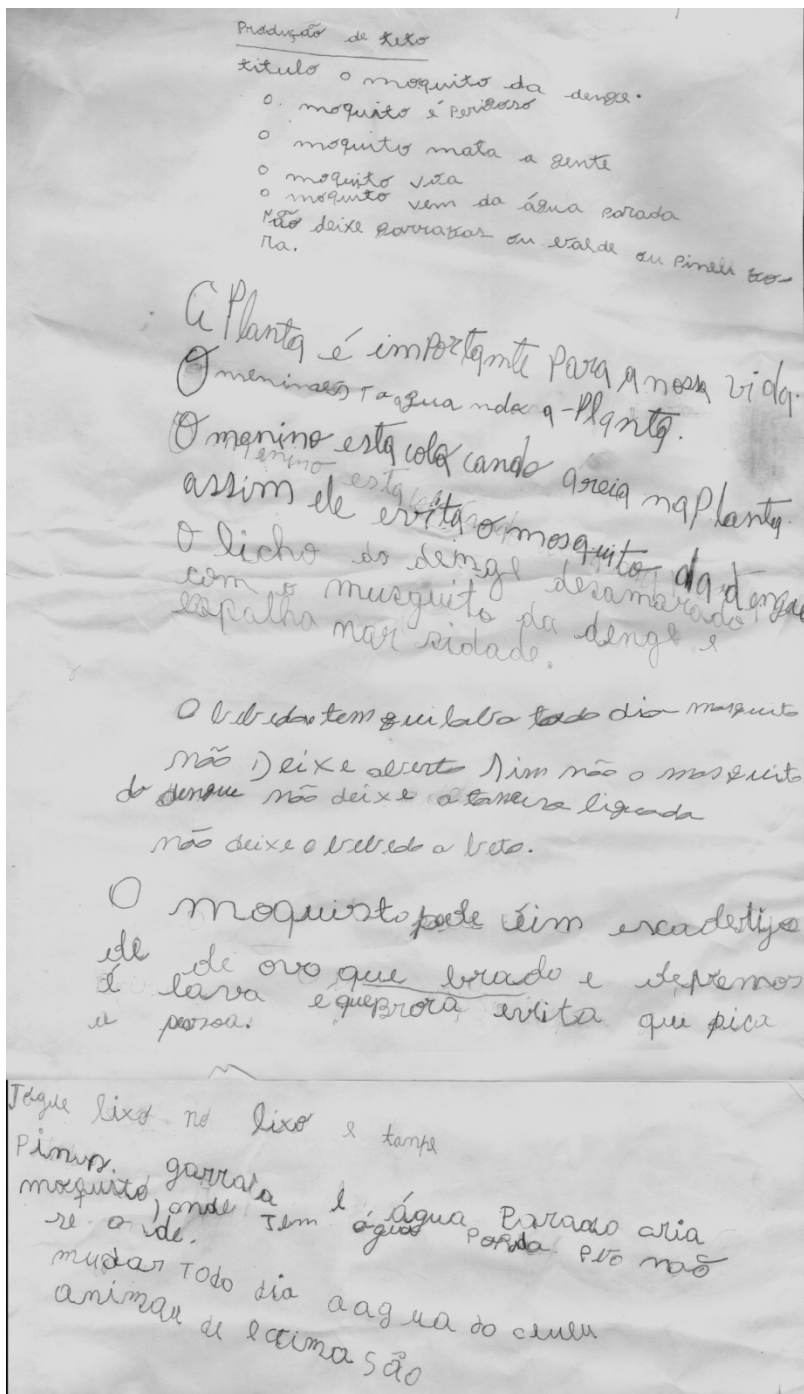 Produção de teto
titulo o moquito da denge.
o. moquito é perigoso
o moquito mata a gente
o moquito vira
o moquito vem da água parada
Não deixe garrafas ou balde ou pineu fo-
ra.
A Planta é importante para a nossa vida.
O menino esta aguando a-Planta.
O menino esta colocando areia na Planta.
assim ele evita o mosquito da dengue
O licho do denge desamarado
com o musquito da denge e
espalha nar sidade.
O bebedor tem qui laba todo dia mosquito
não Deixe aberto sim não o mosquito
do dengue não deixe a torneira ligada
não deixe o bebedo a beto.
O moquisto pode
de de ovo que brado e
é lava e evita que pica
a pessoa.
Jogue lixo no lixo e tampe
Pinus, garrafa e água Parado cria
moequito, onde Tem água parada. não
mudar Todo dia a agua do
animau de estima são